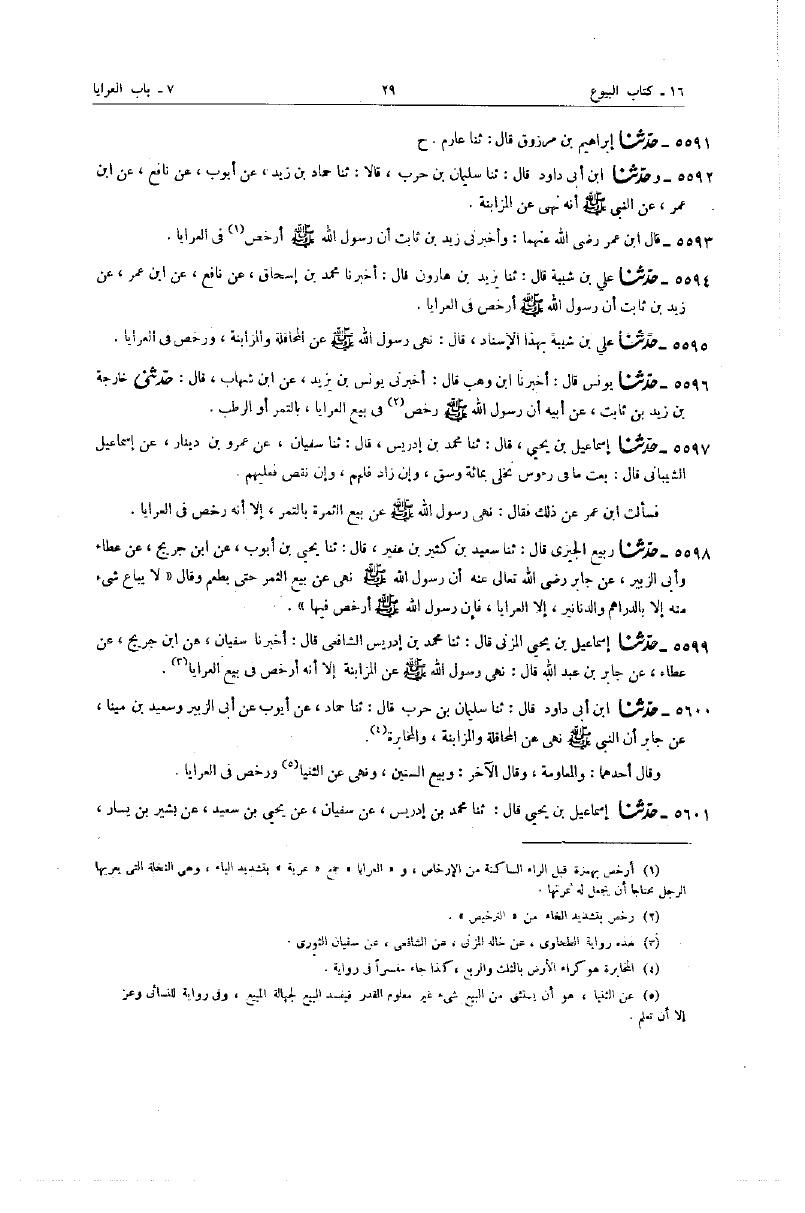 ١٦ - كتاب البيوع ٢٩ ٧ - باب العرايا
٥٥٩١ - حدثنا إبراهيم بن مرزوق قال : ثنا عارم . ح
٥٥٩٢ - وحدثنا ابن أبى داود قال : ثنا سليمان بن حرب ، قالا : ثنا حماد بن زيد ، عن أيوب ، عن نافع ، عن ابن
عمر ، عن النبي ﷺ أنه نهى عن المزابنة .
٥٥٩٣ - قال ابن عمر رضى الله عنهما : وأخبرنى زيد بن ثابت أن رسول الله ﷺ أرخص(١) فى العرايا .
٥٥٩٤ - حدثنا علي بن شيبة قال : ثنا يزيد بن هارون قال : أخبرنا محمد بن إسحاق ، عن نافع ، عن ابن عمر ، عن
زيد بن ثابت أن رسول الله ﷺ أرخص فى العرايا .
٥٥٩٥ - حدثنا علي بن شيبة بهذا الإسناد ، قال : نهى رسول الله ﷺ عن المحاقلة والمزابنة ، ورخص فى العرايا .
٥٥٩٦ - حدثنا يونس قال : أخبرنا ابن وهب قال : أخبرنى يونس بن يزيد ، عن ابن شهاب ، قال : حدثنى خارجة
بن زيد بن ثابت ، عن أبيه أن رسول الله ﷺ رخص(٢) فى بيع العرايا ، بالتمر أو الرطب .
٥٥٩٧ - حدثنا إسماعيل بن يحيى ، قال : ثنا محمد بن إدريس ، قال : ثنا سفيان ، عن عمرو بن دينار ، عن إسماعيل
الشيبانى قال : بعت ما فى رءوس نخلى بمائة وسق ، وإن زاد فلهم ، وإن نقص فعليهم .
فسألت ابن عمر عن ذلك فقال : نهى رسول الله ﷺ عن بيع الثمرة بالتمر ، إلا أنه رخص فى العرايا .
٥٥٩٨ - حدثنا ربيع الجيزى قال : ثنا سعيد بن كثير بن عفير ، قال : ثنا يحيى بن أيوب ، عن ابن جريج ، عن عطاء
وأبى الزبير ، عن جابر رضى الله تعالى عنه أن رسول الله ﷺ نهى عن بيع الثمر حتى يطعم وقال « لا يباع شىء
منه إلا بالدراهم والدنانير ، إلا العرايا ، فإن رسول الله ﷺ أرخص فيها » .
٥٥٩٩ - حدثنا إسماعيل بن يحيى المزنى قال : ثنا محمد بن إدريس الشافعى قال : أخبرنا سفيان ، عن ابن جريج ، عن
عطاء ، عن جابر بن عبد الله قال : نهى رسول الله ﷺ عن المزابنة إلا أنه أرخص فى بيع العرايا(٣) .
٥٦٠٠ - حدثنا ابن أبى داود قال : ثنا سليمان بن حرب قال : ثنا حماد ، عن أيوب عن أبى الزبير وسعيد بن مينا ،
عن جابر أن النبي ﷺ نهى عن المحاقلة والمزابنة ، والمخابرة(٤).
وقال أحدهما : والمعاومة ، وقال الآخر : وبيع السنين ، ونهى عن الثنيا(٥) ورخص فى العرايا .
٥٦٠١ - حدثنا إسماعيل بن يحيى قال : ثنا محمد بن إدريس ، عن سفيان ، عن يحيى بن سعيد ، عن بشير بن يسار ،
(١) أرخص بهمزة قبل الراء الساكنة من الإرخاص ، و « العرايا » جمع « عرية » بتشديد الياء ، وهى النخلة التى يعريها
الرجل محتاجا أن يجعل له ثمرتها .
(٢) رخص بتشديد الخاء من « الترخيص » .
(٣) هذه رواية الطحاوى ، عن خاله المزنى ، عن الشافعى ، عن سفيان الثورى .
(٤) المخابرة هو كراء الأرض بالثلث والربع ، كذا جاء مفسراً فى رواية .
(٥) عن الثنيا ، هو أن يستثنى من البيع شىء غير معلوم القدر فيفسد البيع لجهالة المبيع ، وفى رواية للنسائى وعز
إلا أن تعلم .